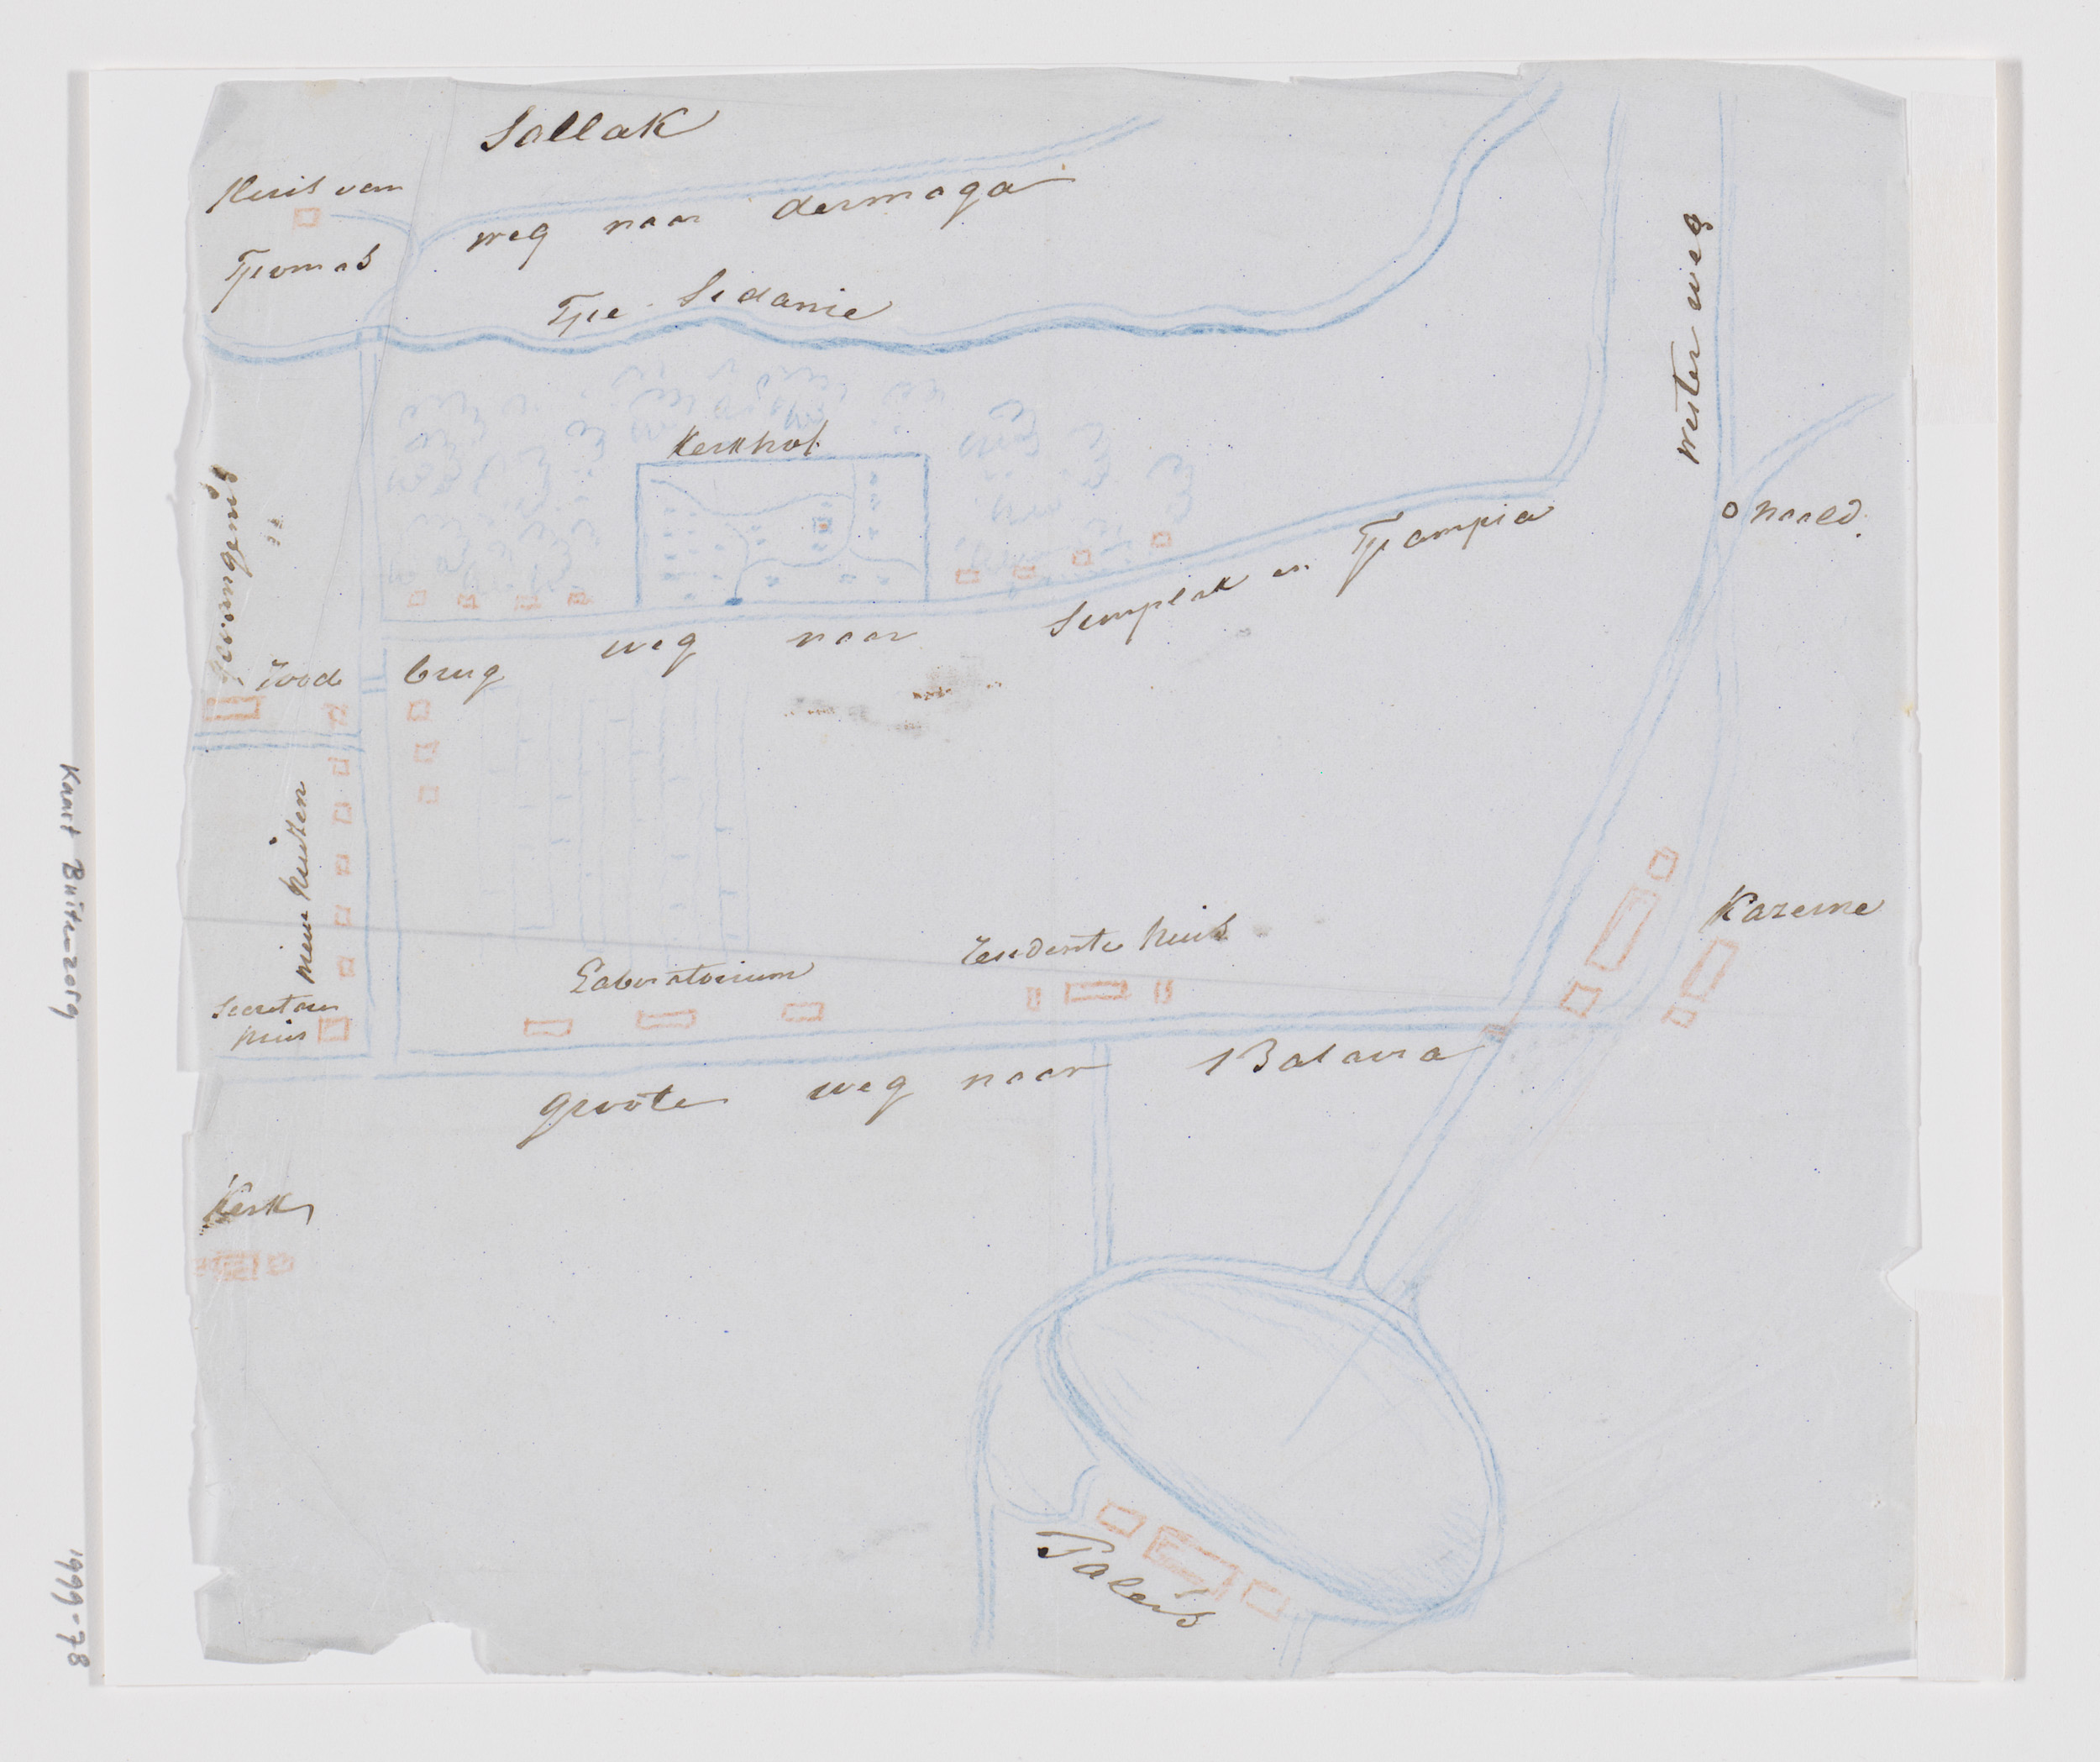 Sallak
Huis van
Tjiomas
weg naar dermaga
Tjie Sedanie
wester weg
Kerkhof
naald.
gevangenis
weg naar Semplak en Tjampia
roode brug
nieuwe huizen
Kazerne
residentie huis
Laboratorium
Secretaris
huis
groote weg naar Batavia
Kerk
Paleis
Kaart Buitenzorg
1999-78